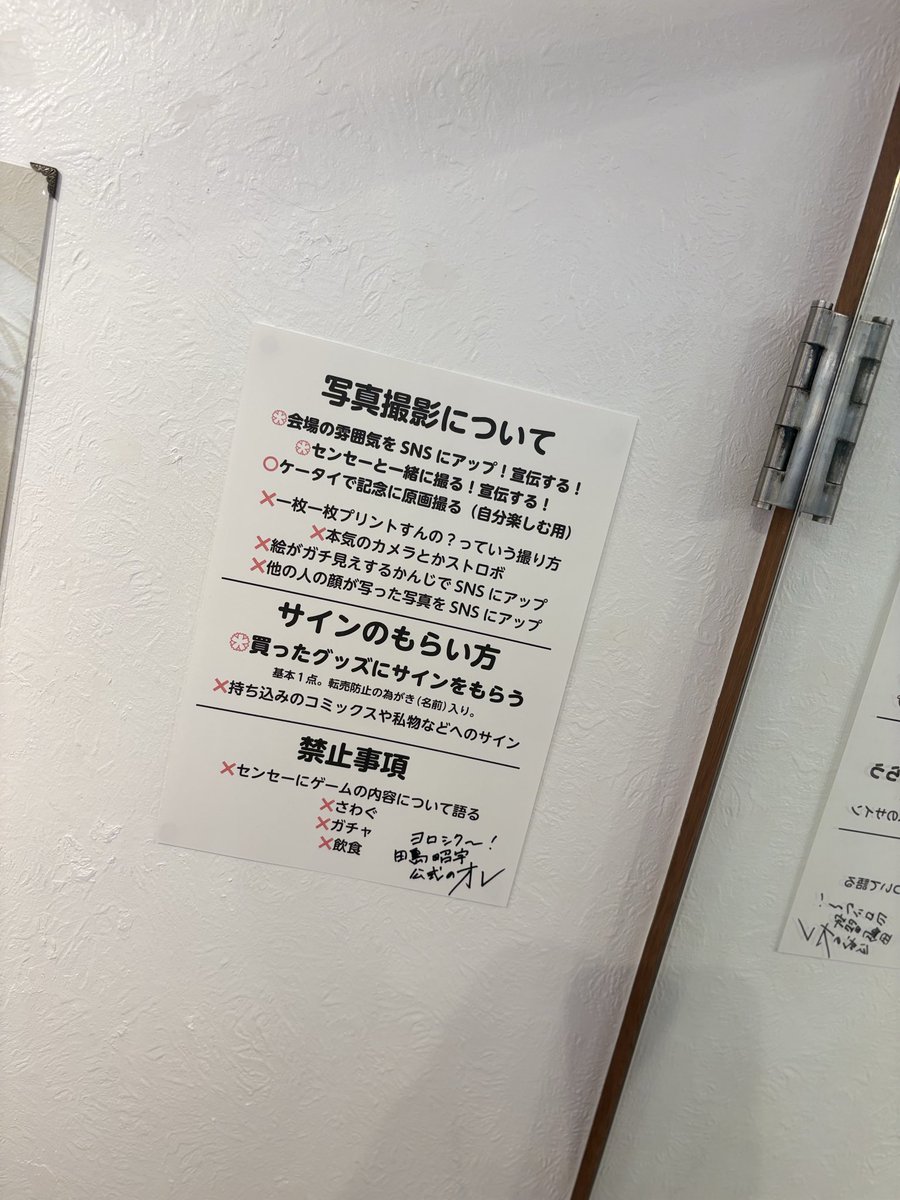 写真撮影について
会場の雰囲気をSNSにアップ！宣伝する！
センセーと一緒に撮る！宣伝する！
○ケータイで記念に原画撮る（自分楽しむ用）
×一枚一枚プリントすんの？っていう撮り方
×本気のカメラとかストロボ
×絵がガチ見えするかんじでSNSにアップ
×他の人の顔が写った写真をSNSにアップ
サインのもらい方
買ったグッズにサインをもらう
基本1点。転売防止の為がき(名前)入り。
×持ち込みのコミックスや私物などへのサイン
禁止事項
×センセーにゲームの内容について語る
×さわぐ
×ガチャ
×飲食
ヨロシク〜！
田島昭宇
公式のオレ